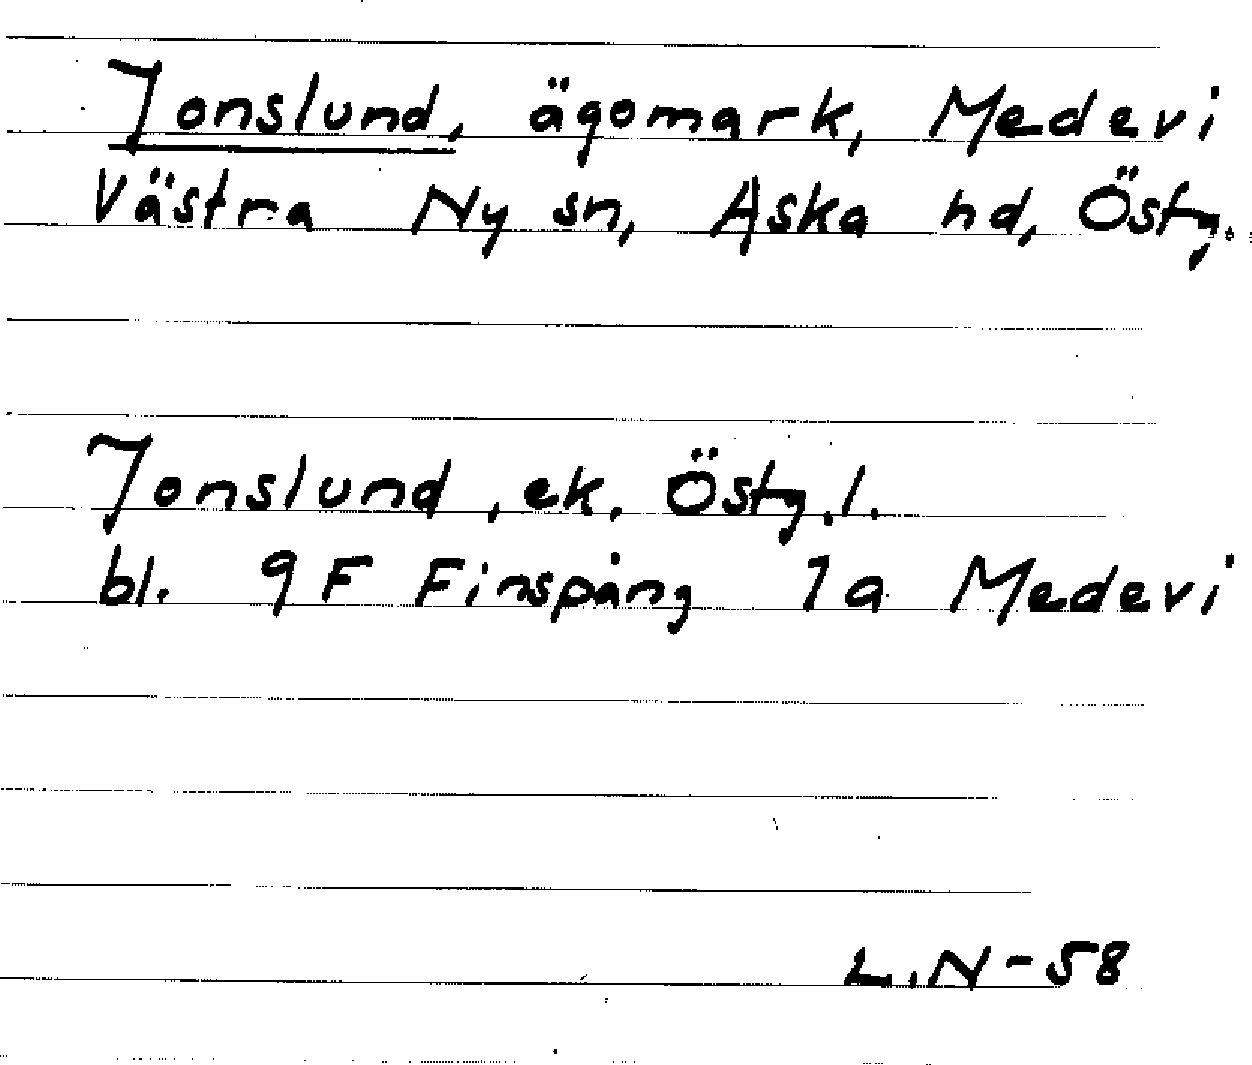 Jonslund, ägomark, Medevi
Västra Ny sn, Aska hd, Östg.
Jonslund, ek. Östg.l.
bl. 9F Finspång 7a Medevi
L.N-58